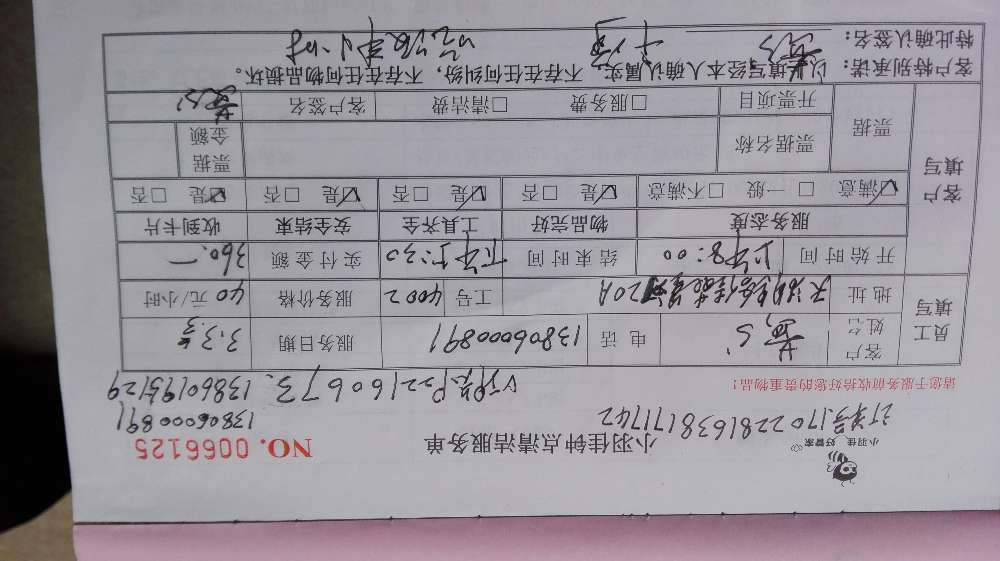 小羽佳 好管家
小羽佳钟点清洁服务单
NO. 0066125
订单号1702281638171742
13806000891
请您于服务前收拾好您的贵重物品!
P22160673. 13860195129
员工填写
客户姓名
电话 13806000891 服务日期 3.3.
地址 20A
工号 4002 服务价格 40 元/小时
开始时间 上午8:00 结束时间 下午5:30 实付金额 360.一
客户填写
服务态度 物品完好 工具齐全 安全结束 收到卡片
☑满意 □一般 □不满意 ☑是 □否 ☑是 □否 ☑是 □否 ☑是 □否
票据
票据名称 票据金额
开票项目 □服务费 □清洁费 客户签名
客户特别承诺:以上填写经本人确认属实,不存在任何纠纷,不存在任何物品损坏。
特此确认签名: